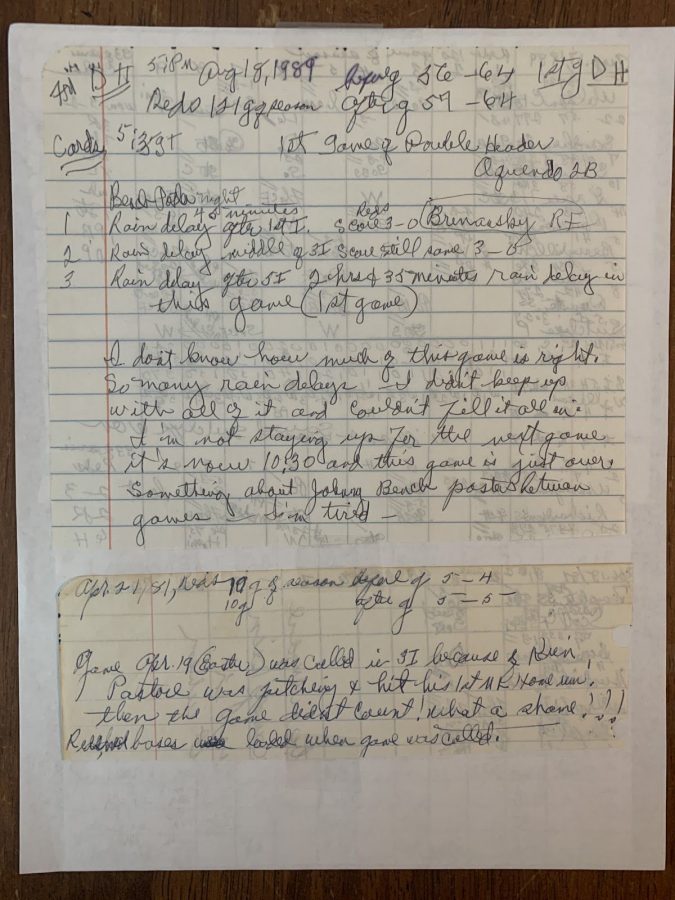 D H 5:18 PM Aug 18, 1989 before g 56-64 1st g D H
Reds 121 g of season after g 57-64
Cards 1st Game of Double Header
Oquendo 2B
Bench Poster night
45 minutes Reds
1 Rain delay after 1st I. Score 3-0 Brunansky RF
2 Rain delay middle of 3I Score still same 3-0
3 Rain delay after 5I 2 hrs & 35 minutes rain delay in
this game (1st game)
I don't know how much of this game is right.
So many rain delays - I didn't keep up
with all of it and couldn't fill it all in.
I'm not staying up for the next game
it's now 10:30 and this game is just over.
Something about Johnny Bench poster betwan
games - I'm tired -
Apr. 21, 81, Reds 10 g of season before g 5-4
10g after g 5-5
Game Apr. 19 (Easter) was called in 3I because of Rain,
Pastore was pitching & hit his 1st M L Home run.
then the game didn't count! What a shame!!!
Reds had bases loaded when game was called.